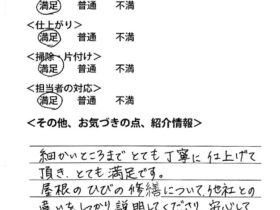 満足 普通 不満
<仕上がり>
満足 普通 不満
<掃除・片付け>
満足 普通 不満
<担当者の対応>
満足 普通 不満
<その他、お気づきの点、紹介情報>
細かいところまでとても丁寧に仕上げて
頂き、とても満足です。
屋根のひびの修繕について、他社との
違いをしっかり説明してくださり、安心して